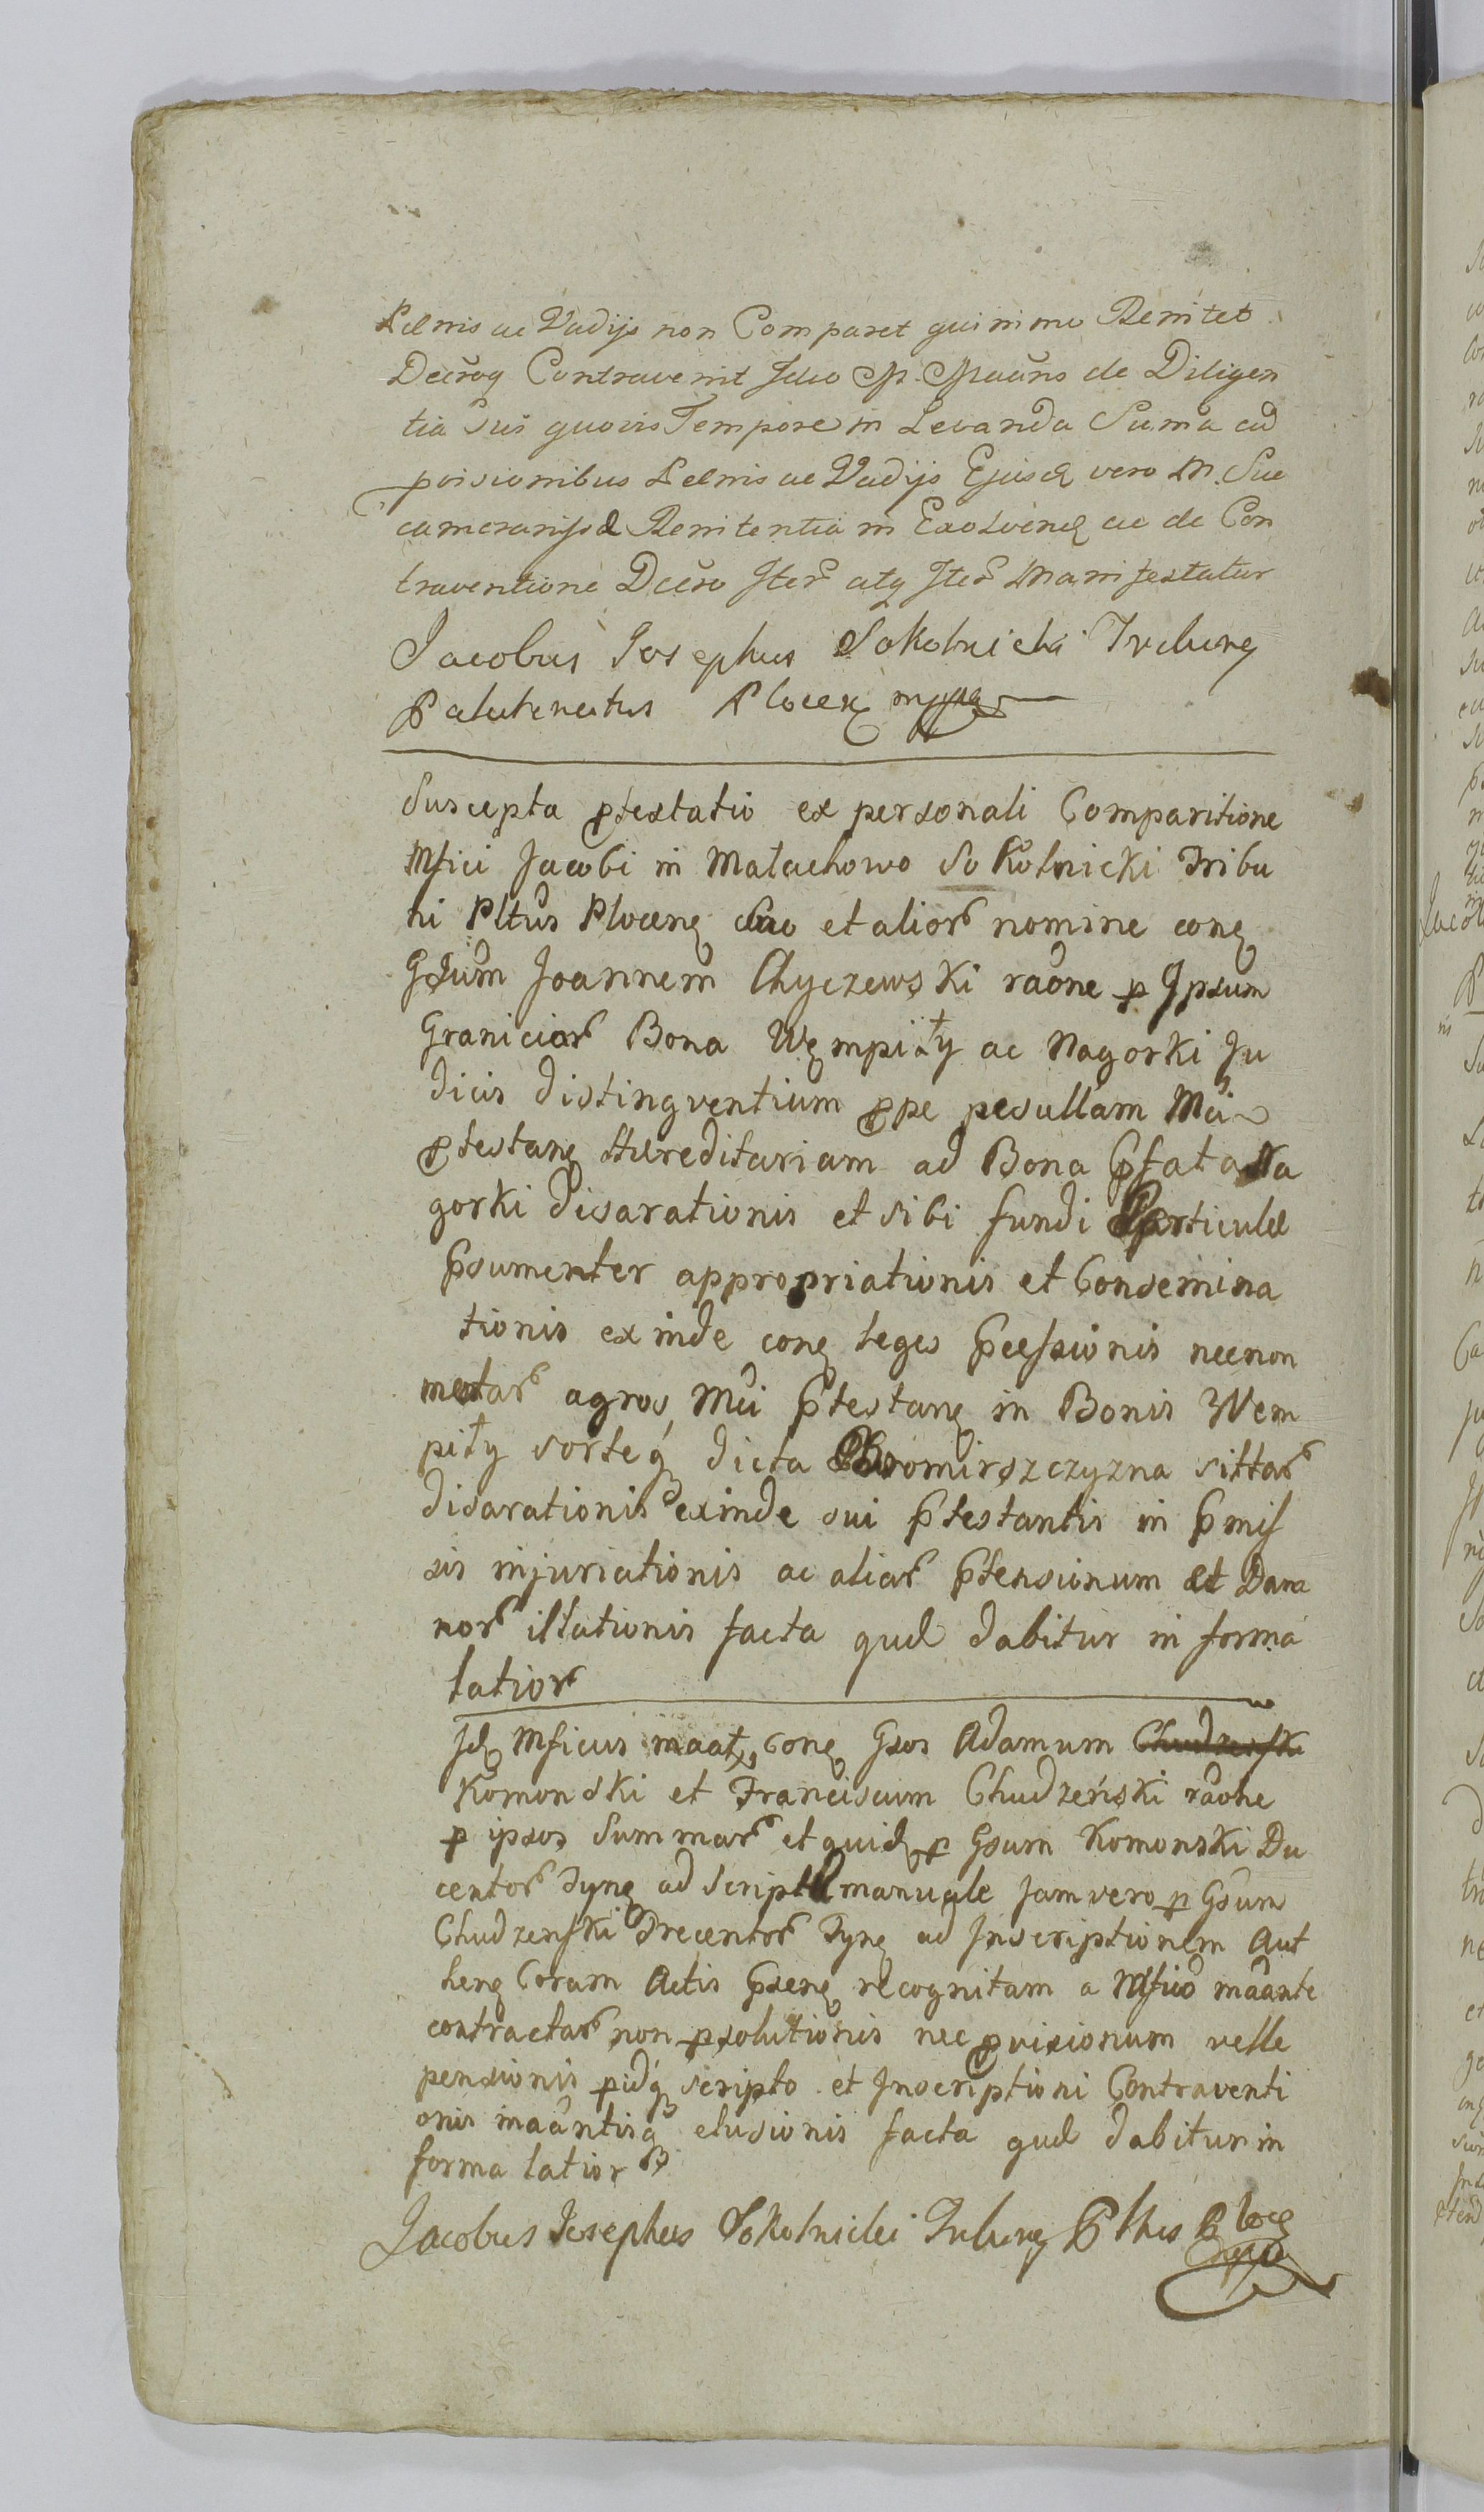 Pœnis ac Vadijs non Comparet quinimo Renitet
Decroq Contravenit Ideo M. Maans de Diligen
tia Sui quovis Tempore in Levanda Suma cu
provisionibus Pœnis ac Vadijs Ejusq vero M. Suc
camerarij de Renitentia in Exolvenq ac de Con
traventione Decro Iter atq Iter Manifestatur
Jacobus Josephus Sokolnicki Tribung
Palatinatus Plocen mppa
Suscepta ptestatio ex personali Comparitione
Mfici Jacobi in Małachowo Sokolnicki Tribu
ni Pltus Plocenq suo et alior nomine conq
Gsum Joannem Chyczewski raone p Ipsum
Graniciar Bona Wempiły ac Nagorki Ju
dicis distingventium ppe pesullam Mci
ptestanq Hæreditariam ad Bona Pfata Na
gorki disarationis et sibi fundi Particulæ
Psumenter appropriationis et Consemina
tionis exinde conq leges Pcessionis necnon
metar agros Mci Ptestanq in Bonis Wem
piły sorteq dicta Bromirszczyzna sittar
disarationis exinde sui Ptestantis in Pmis
sis injuriationis ac aliar Ptensionum et Dam
nor illationis facta quæ dabitur in forma
latior
Id Mficus maat, conq Gsos Adamum
Komonski et Franciscum Chudzeński raone
p ipsos Summar et quid p Gsum Komonski Du
centor Tynq ad Script manuale Jam vero p Gsum
Chudzenski Trecentor Tynq ad Inscriptionem Aut
henq Coram Actis Psenq recognitam a Mfico maante
contractar non psolutionis nec pvisionum velle
pensionis pidq scripto et Inscriptioni Contraventi
onis maantisq elusionis facta quæ dabitur in
forma latior
Jacobus Josephus Sokolnicki Tribung Plthus Ploc